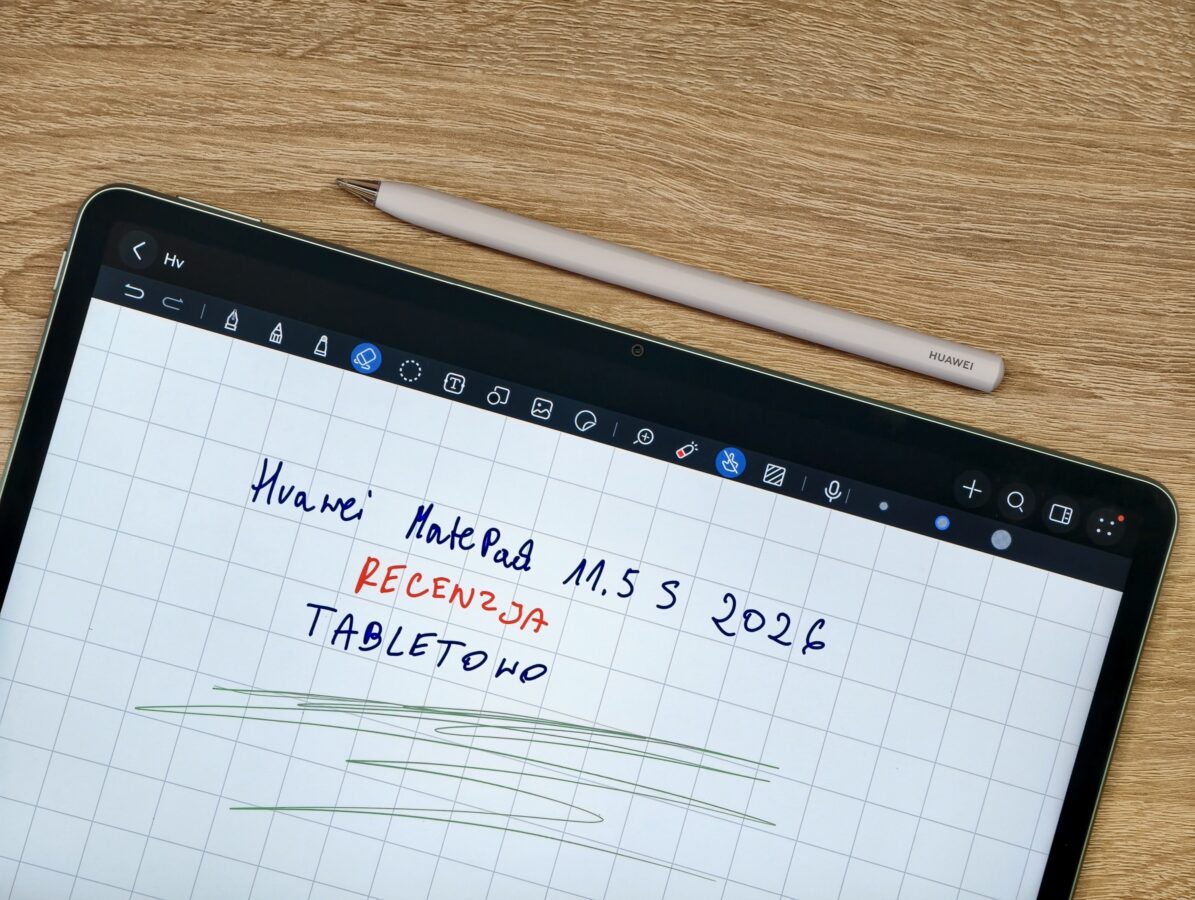 HUAWEI
Hv
T
Huawei MatePad 11.5 S 2026
RECENZJA
TABLETOWO